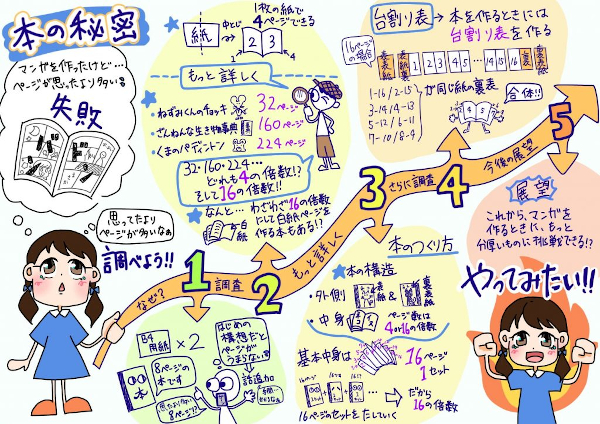 本の秘密
マンガを作ったけど…
ページが思ったより多いなぁ
失敗
思ってたより
ページが多いなぁ
調べよう!!
なぜ?
1
調査
B4
用紙
×2
8ページの
本です
思ったより多い
8ページ??
本
はじめの
構想だと
ページが
うまらない…
話追加
2
もっと詳しく
紙
中とじ
1枚の紙で
4ページできる
2 3
もっと詳しく
・ねずみくんのチョッキ 32ページ
・ざんねんな生き物事典 160ページ
・くまのパディントン 224ページ
32・160・224…
どれも4の倍数!?
そして16の倍数!!
なんと…わざわざ16の倍数
にして白紙ページを
作る本もある!?
白紙
3
さらに調査
本のつくり方
本の構造
・外側 表紙 & 裏表紙
・中身 ページ数は
4or16の倍数
基本中身は 16ページ
1セット
だから
16の倍数
16ページのセットをたしていく
4
台割り表 → 本を作るときには
台割り表を作る
16ページ
の場合
表紙 表紙裏 1 2 3 4 5 … 14 15 16 裏 裏表紙
1-16/2-15
3-14/4-13
5-12/6-11
7-10/8-9
が同じ紙の裏表
合体!!
今後の展望
5
展望
これから、マンガを
作るときに、もっと
分厚いものに挑戦できる!?
やってみたい!!